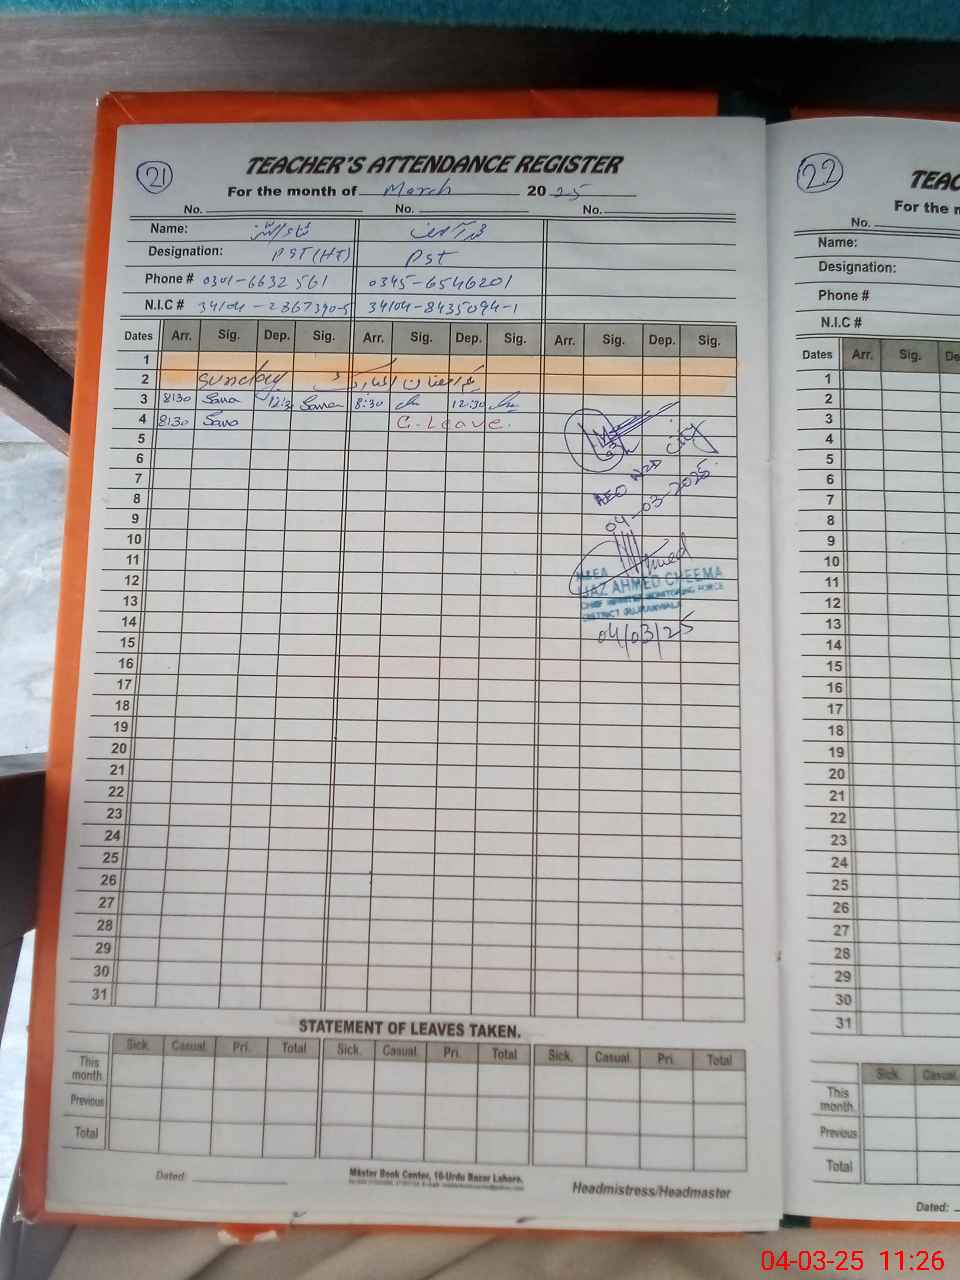 21
TEACHER'S ATTENDANCE REGISTER
For the month of March 2025
No. No. No.
Name:
Designation: PST(HT) PST
Phone # 0301-6632561 0345-6546201
N.I.C # 34104-2367390-5 34104-8435094-1
Dates Arr. Sig. Dep. Sig. Arr. Sig. Dep. Sig. Arr. Sig. Dep. Sig.
1
2 Sunday رمضان المبارک
3 8:30 Sana 12:30 Sana 8:30 12:30
4 8:30 Sana C-Leave.
5
6
7
8
9
10
11
12
13
14
15
16
17
18
19
20
21
22
23
24
25
26
27
28
29
30
31
AEO
04-03-2025
M&EA
IJAZ AHMED CHEEMA
CHIEF MINISTER MONITORING FORCE
DISTRICT GUJRANWALA
04/03/25
STATEMENT OF LEAVES TAKEN.
Sick. Casual. Pri. Total Sick. Casual. Pri. Total Sick. Casual. Pri. Total
This month
Previous
Total
Dated:
Master Book Center, 16-Urdu Bazar Lahore.
Headmistress/Headmaster
22
TEAC
For the m
No.
Name:
Designation:
Phone #
N.I.C #
Dates Arr. Sig. De
1
2
3
4
5
6
7
8
9
10
11
12
13
14
15
16
17
18
19
20
21
22
23
24
25
26
27
28
29
30
31
Sick. Casual.
This month.
Previous
Total
Dated:
04-03-25 11:26